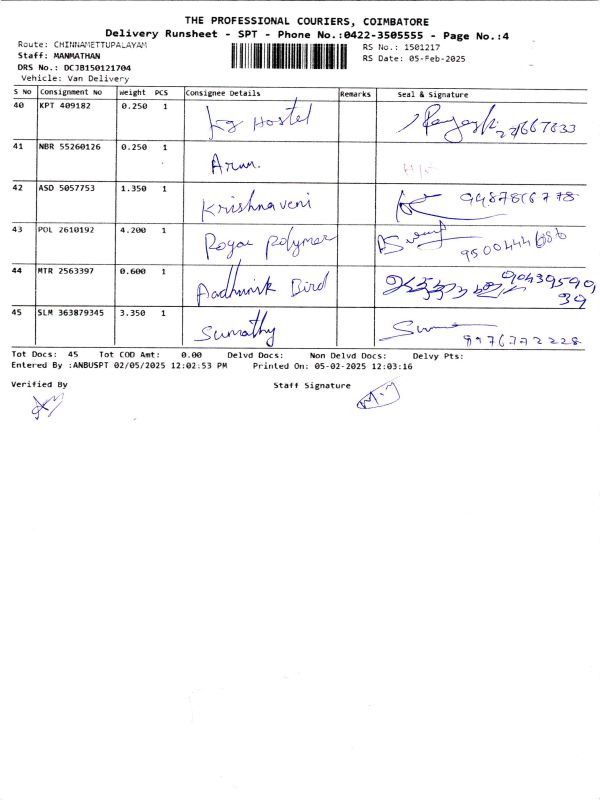 THE PROFESSIONAL COURIERS, COIMBATORE
Delivery Runsheet - SPT - Phone No.:0422-3505555 - Page No.:4
Route: CHINNAMETTUPALAYAM
Staff: MANMATHAN
DRS No.: DCJB150121704
Vehicle: Van Delivery
RS No.: 1501217
RS Date: 05-Feb-2025
S No Consignment No Weight PCS Consignee Details Remarks Seal & Signature
40 KPT 409182 0.250 1 kg Hostel
41 NBR 55260126 0.250 1 Arun.
42 ASD 5057753 1.350 1 Krishnaveni
43 POL 2610192 4.200 1 Royal polymer 9500444686
44 MTR 2563397 0.600 1 Aadhunik Bird
45 SLM 363879345 3.350 1 Sumathy 9976372228
Tot Docs: 45 Tot COD Amt: 0.00 Delvd Docs: Non Delvd Docs: Delvy Pts:
Entered By :ANBUSPT 02/05/2025 12:02:53 PM Printed On: 05-02-2025 12:03:16
Verified By Staff Signature